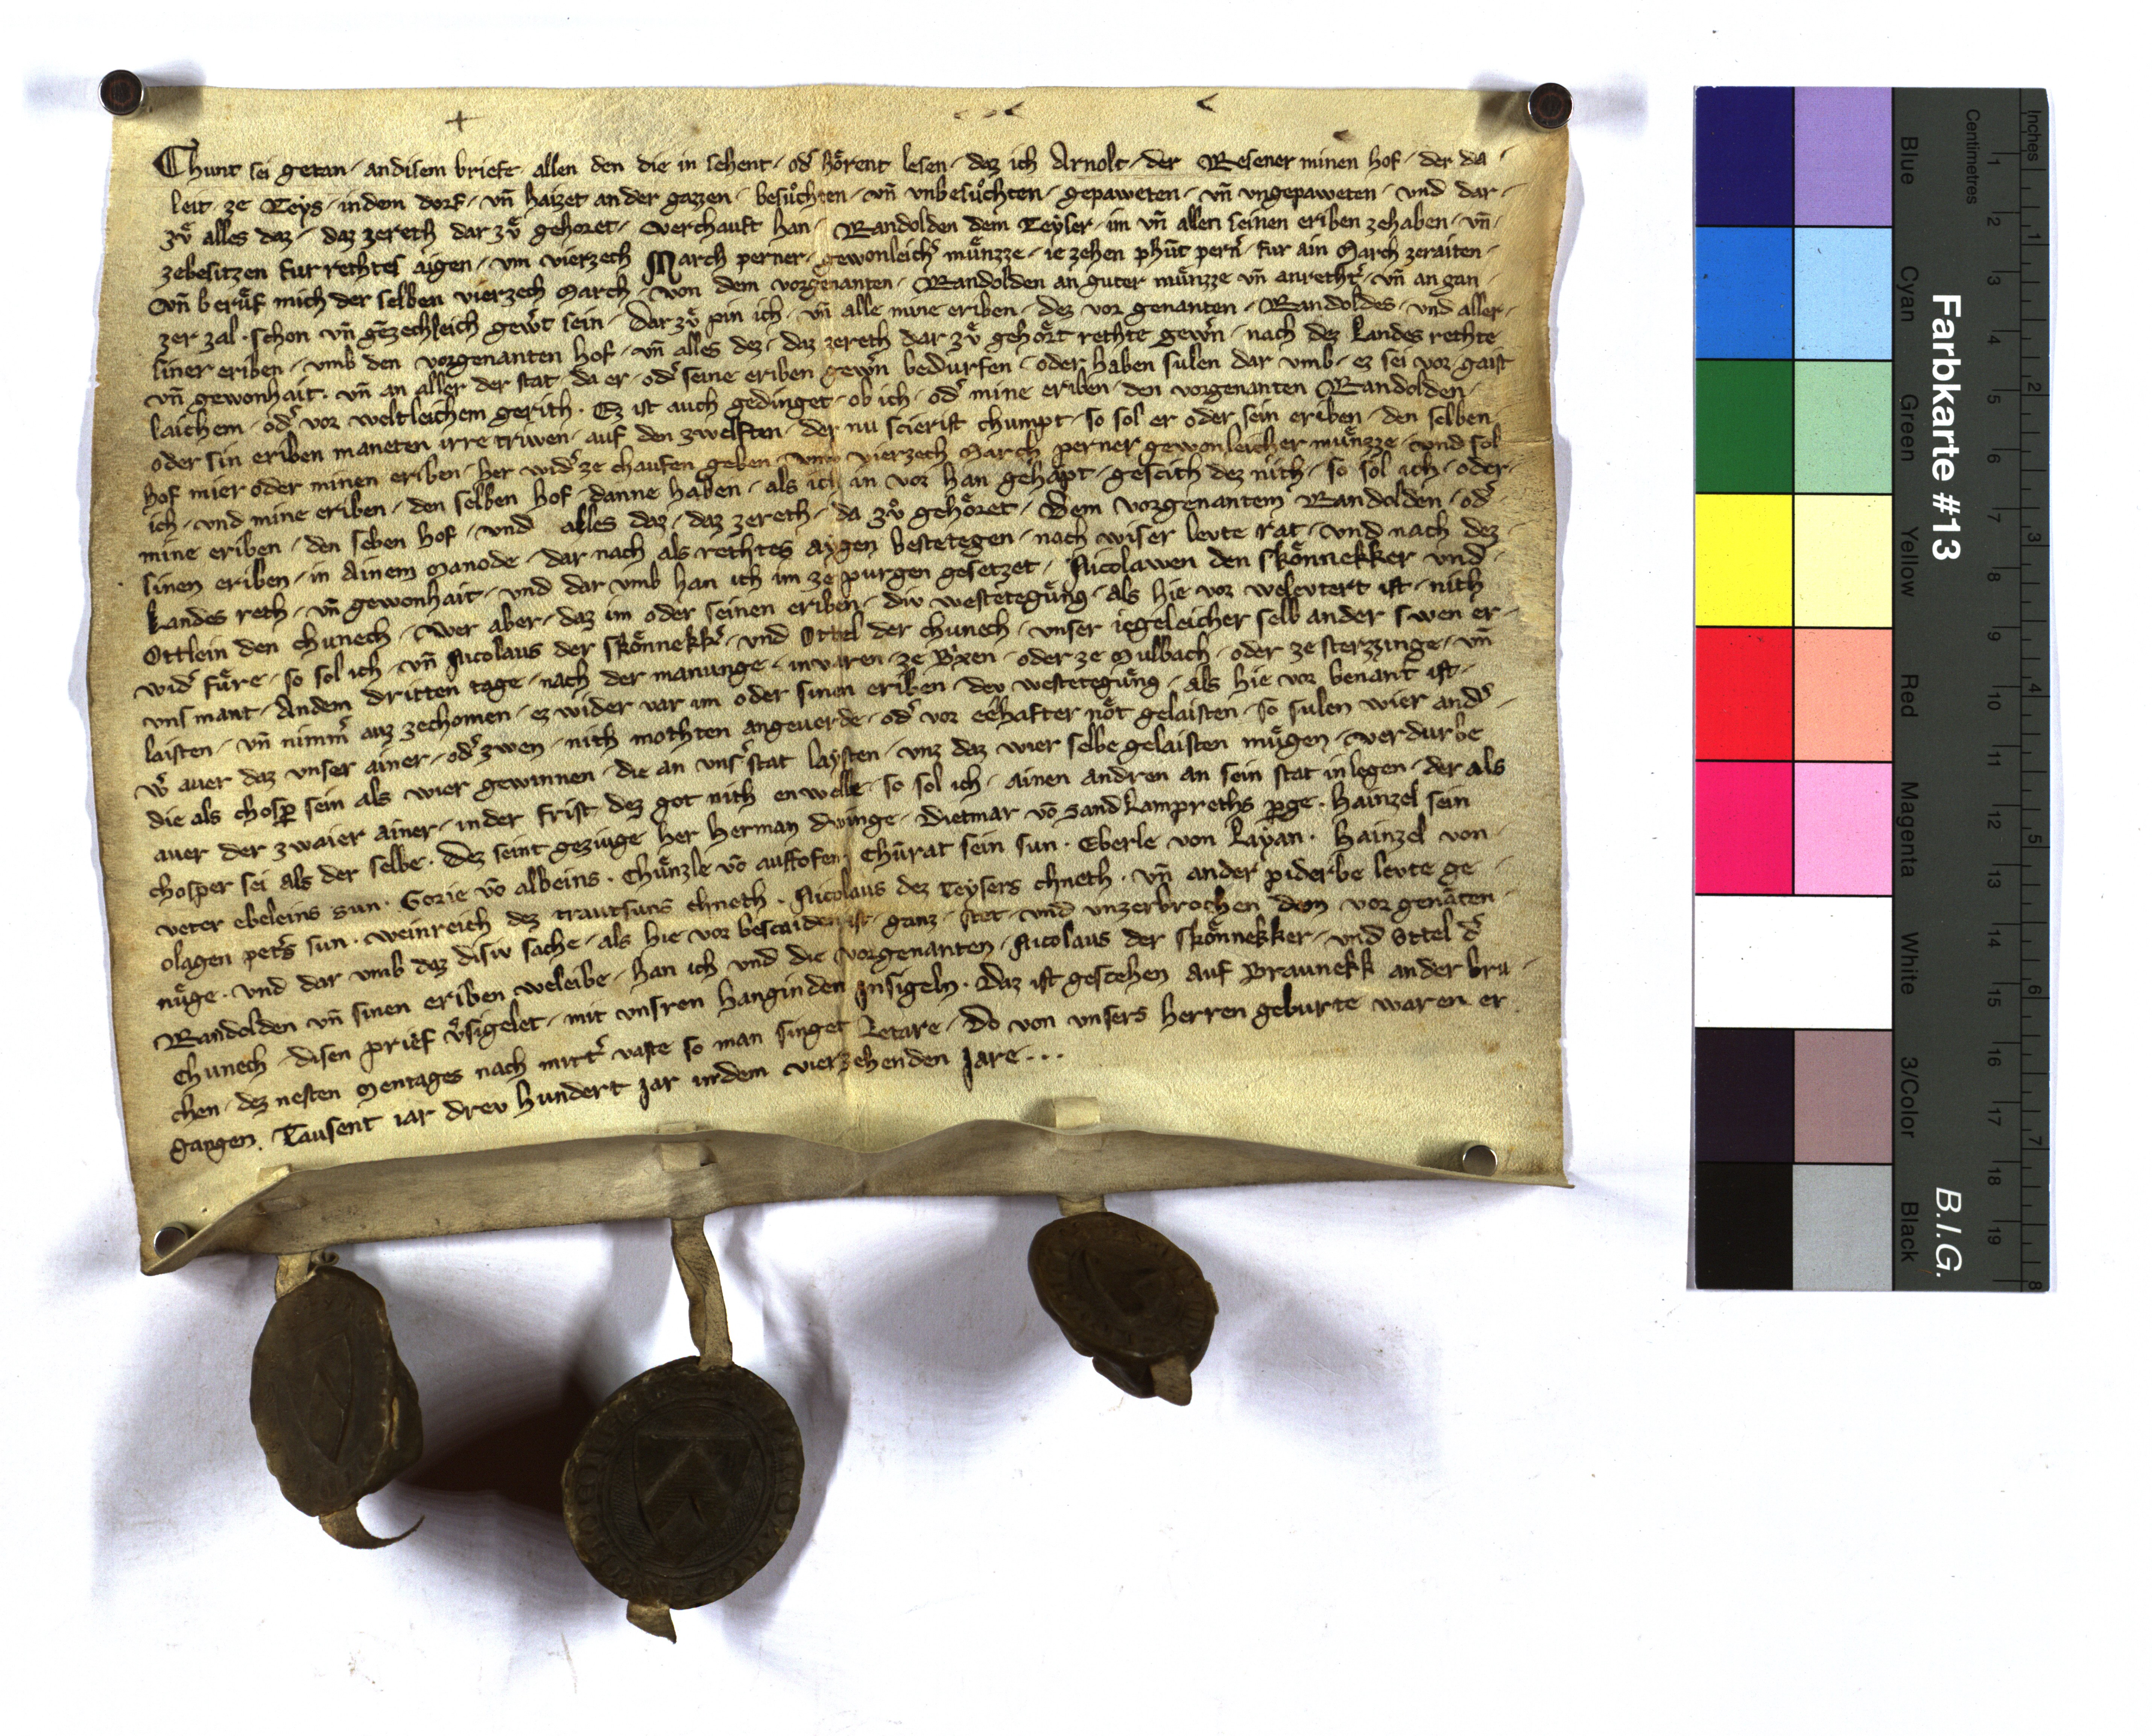 Chunt sei getan / andisem briefe / allen den die in sehent / od͛ hoͤrent lesen / daz ich Arnolt / der Resener minen hof / der da /
leit / ze Teys / indem dorf / vn̄ haizet an der gazzen / besuͦchten / vn̄ vnbesuͦchten / gepaweten / vn̄ vngepaweten / vnd dar /
zuͤ alles daz / daz zereth dar zuͤ gehoret / Verchauft han / Randolden dem Teyser / im vn̄ allen seinen eriben zehaben / vn̄ /
zebesitzen fur rethtes aigen / vm vierzech March perner / gewonleich͛ muͤnzze / ie zehen phūt pern͛ / fur ain March zeraiten /
Vn̄ beruͤf mich der selben vierzech March / von dem vorgenanten / Randolden an guter muͤnzze vn̄ anretht͛ / vn̄ an gan /
zer zal / schon vn̄ gēzechleich gew͛t sein / Dar zuͤ pin ich / vn̄ alle mine eriben / dez vor genanten / Randoldes / vnd aller /
siner eriben / vmb den vorgenanten hof / vn̄ alles dez / daz zereth dar zuͤ gehoͤrt rethte gew͛n / nach dez Landes rethte
vn̄ gewonhait / vn̄ an aller der stat / da er / od͛ seine eriben gew͛n bedurfen / oder haben sulen dar vmb / ez sei vor gaist
laichem / od͛ vor weltleichem gerith. Ez ist auch gedinget / ob ich / od͛ mine eriben / den vorgenanten Randolden /
oder sin eriben maneten irre triwen / auf den zwelften / der nu scierist chumpt / so sol er oder sein eriben / den selben
hof mier oder minen eriben / her wid͛ ze chaufen geben / vmb vierzech March perner gewonleicher muͤnzze / vnd sol
ich / vnd mine eriben / den selben hof / danne haben / als ich in vor han gehapt / gescith dez nith / so sol ich / oder /
mine eriben / den seben hof / vnd alles daz / daz zereth / da zuͦ gehoͤret / Dem vorgenantem Randolden / od͛
sinen eriben / in Ainem Manode / dar nach als rethtes aygen bestetegen / nach wiser levte rat / vnd nach dez
Landes reth / vn̄ gewonhait / vnd dar vmb han ich im ze purgen gesetzet / Nicolawen den Skoͤnnekker vnd /
Ottlein den chunech / Wer aber / daz im oder seinen eriben / div westeteguͤng / als hie vor welevtert ist / nith
wid͛ fuͤre / so sol ich / vn̄ Nicolaus der Skoͤnnekk͛ / vnd Ottel der chunech / vnser iegeleicher selb ander swen er /
vns mant / Andem dritten tage / nach der manunge / invaren / ze B͛xen / oder ze Mulbach / oder ze sterzzinge / vn̄
laisten / vn̄ nimm͛ auz zechomen / ez wider var im oder sinen eriben / dev westeteguͤng / als hie vor benant ist /
w͛ auer daz vnser ainer / od͛ zwen / nith mothten angeuerde / od͛ vor eehafter noͤt gelaisten / so sulen wier and͛ /
die als chosp͛ sein als wier gewinnen / die an vns͛ stat laysten / vnz daz wier selbe gelaisten muͤgen / werdurbe
auer der zwaier ainer / inder frist dez got nith enwelle / so sol ich / ainen andren an sein stat in legen / der als
chosper sei als der selbe. Dez seint geziuge her Herman dwinge / Dietmar vō sand Lampreths p͛ge. hainzel sein
veter ebeleins sun. Gorie vō albeins. Chuͤnzle vō aufhofen. Chūrat sein sun. Eberle von Layan. hainzel von
olagen pet͛s sun. weinreich dez trautsuns chneth. Nicolaus dez Teysers chneth. vn̄ ander piderbe levte ge
nuͤge. Vnd dar vmb daz disiv sache / als hie vor bescaiden ist / ganz / stet / vnd vnzerbrochen dem vor genāten /
Randolden vn̄ sinen eriben weleibe / han ich vnd die vorgenanten / Nicolaus der Skoͤnnekker / vnd Ottel d͛
Chunech / disen prief v͛sigelet / mit vnsren hanginden Insigeln. Daz ist gescehen auf Braunekk an der bru /
chen / dez nesten Mentages nach mitt͛ vaste so man singet Letare / Do von vnsers herren geburte waren er
gangen. Tausent iar drev hundert Jar indem vierzehenden Jare...
Farbkarte #13
B.I.G.
Blue
Cyan
Green
Yellow
Red
Magenta
White
3/Color
Black
Centimetres
Inches
1
2
3
4
5
6
7
8
9
10
11
12
13
14
15
16
17
18
19
1
2
3
4
5
6
7
8